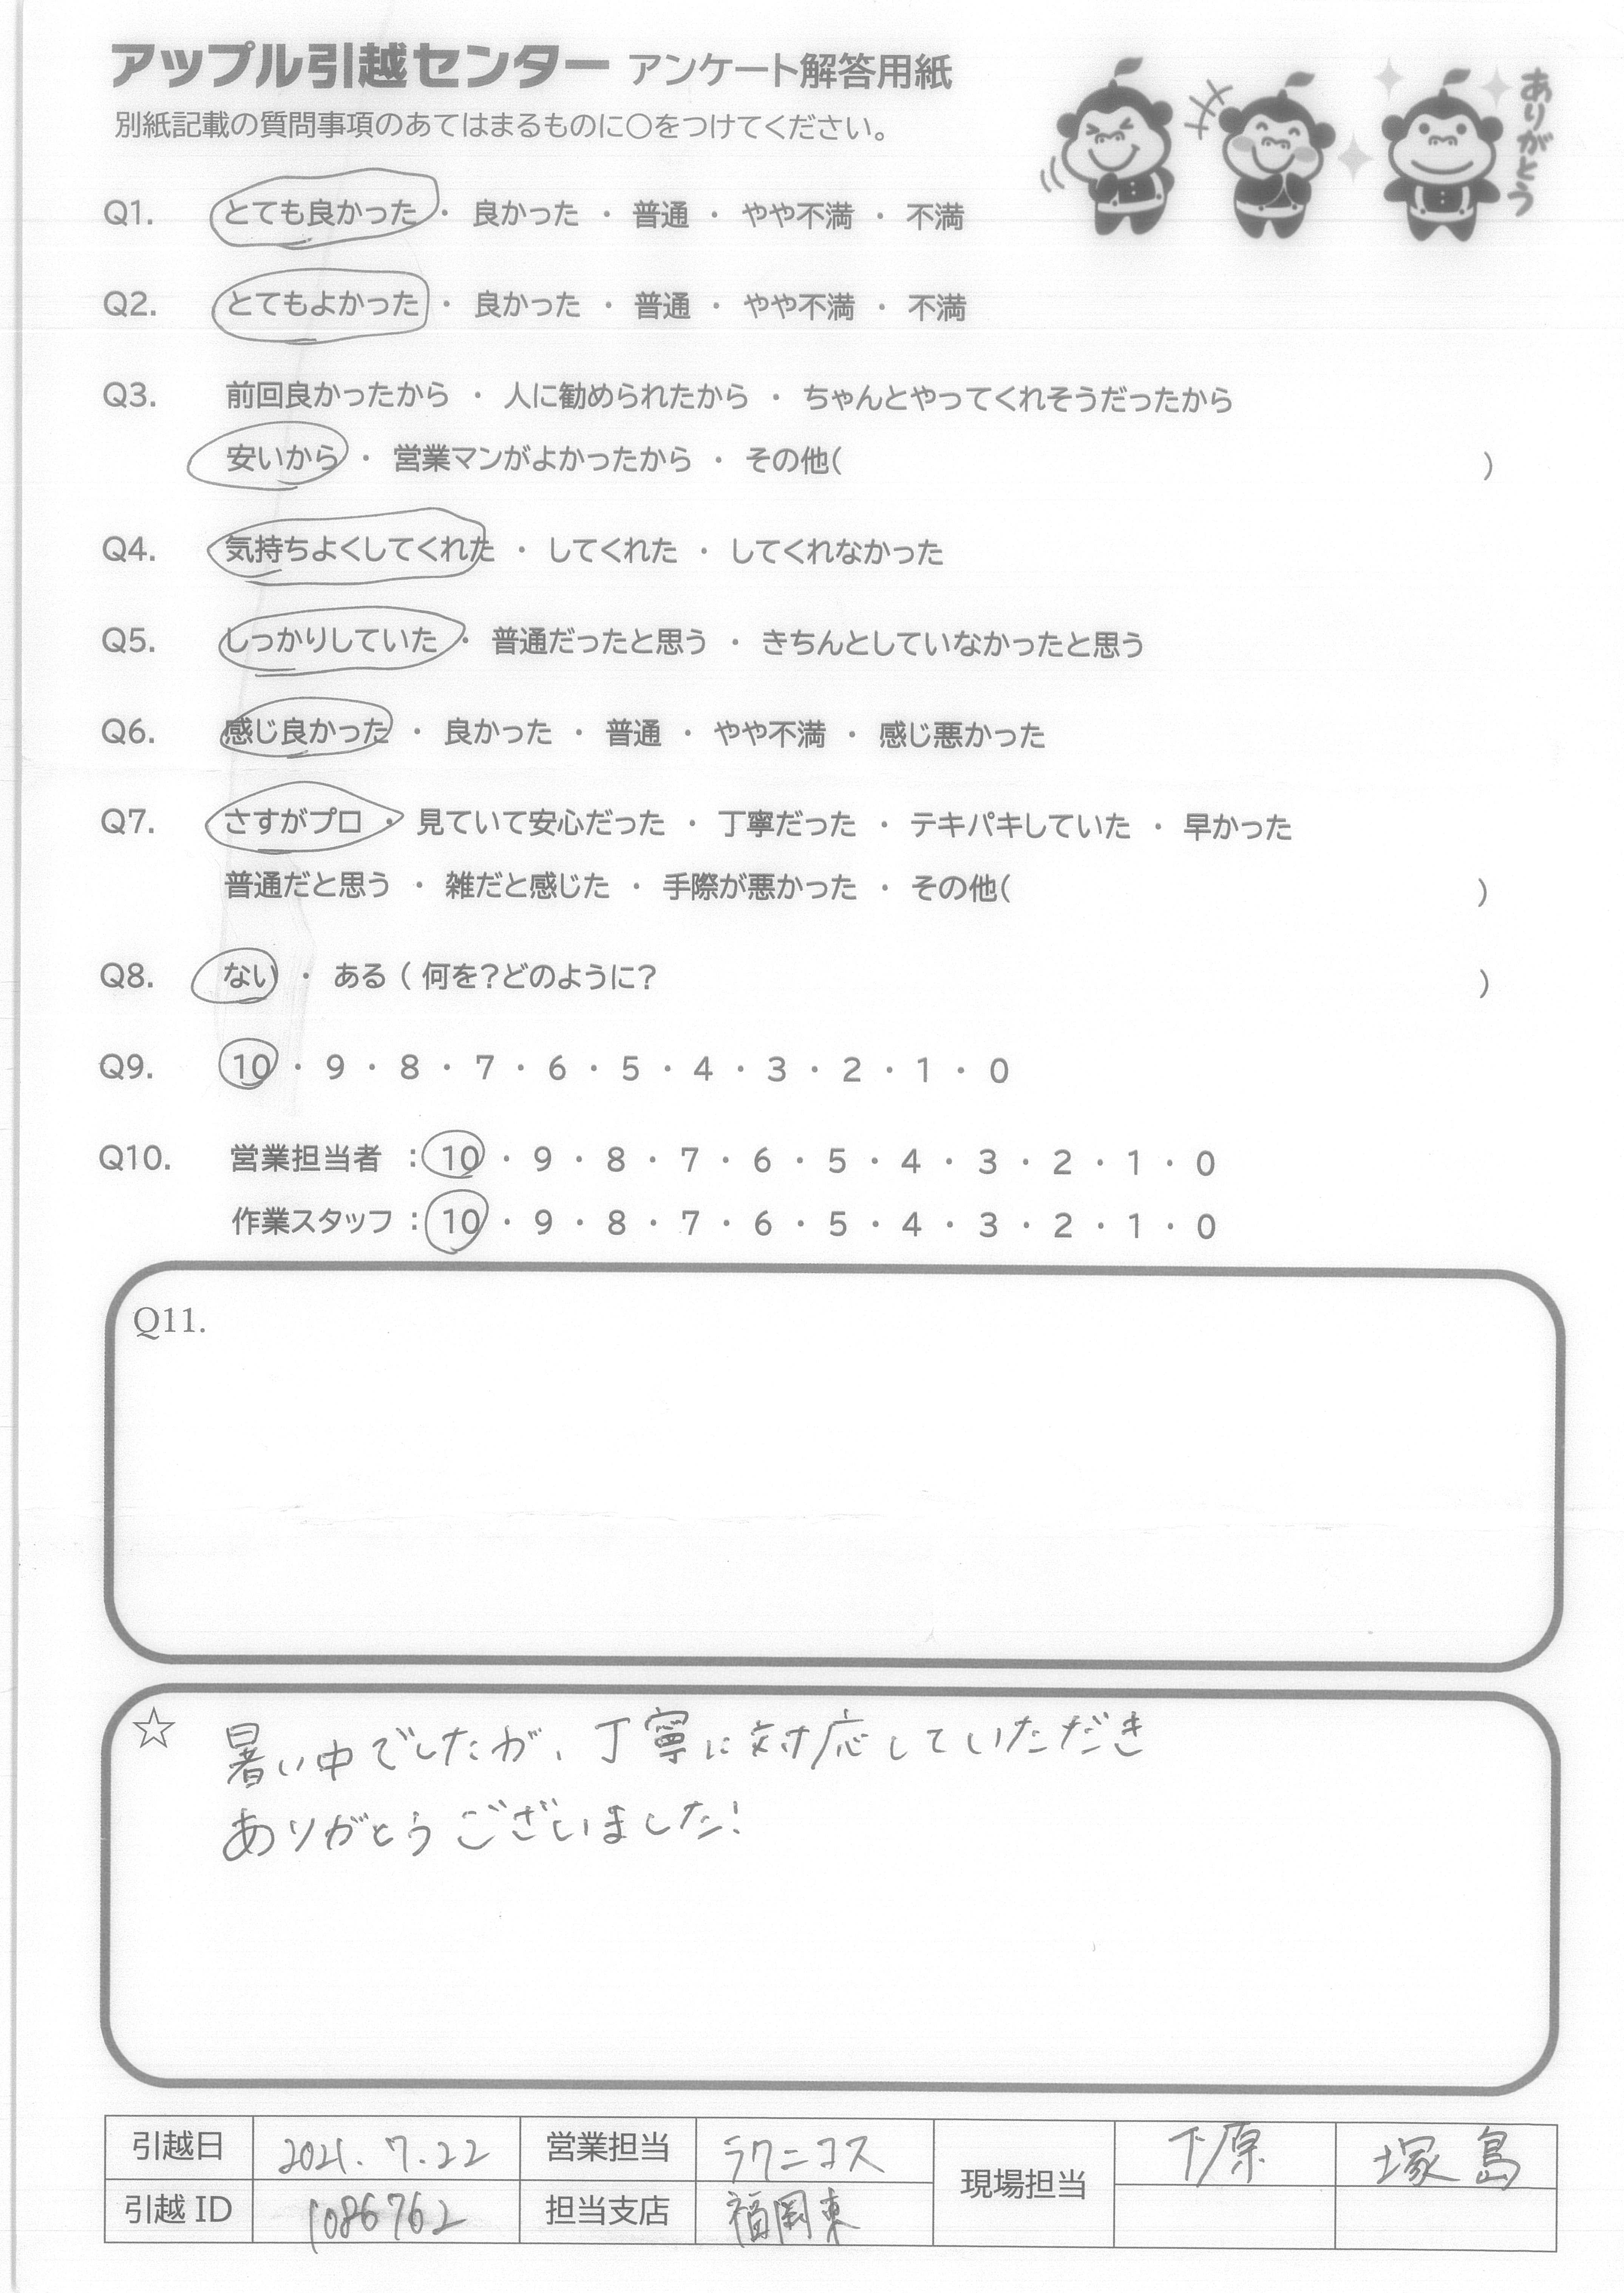 アップル引越センター アンケート解答用紙
別紙記載の質問事項のあてはまるものに○をつけてください。
ありがとう
Q1. とても良かった ・ 良かった ・ 普通 ・ やや不満 ・ 不満
Q2. とてもよかった ・ 良かった ・ 普通 ・ やや不満 ・ 不満
Q3. 前回良かったから ・ 人に勧められたから ・ ちゃんとやってくれそうだったから
安いから ・ 営業マンがよかったから ・ その他( )
Q4. 気持ちよくしてくれた ・ してくれた ・ してくれなかった
Q5. しっかりしていた ・ 普通だったと思う ・ きちんとしていなかったと思う
Q6. 感じ良かった ・ 良かった ・ 普通 ・ やや不満 ・ 感じ悪かった
Q7. さすがプロ ・ 見ていて安心だった ・ 丁寧だった ・ テキパキしていた ・ 早かった
普通だと思う ・ 雑だと感じた ・ 手際が悪かった ・ その他( )
Q8. ない ・ ある ( 何を?どのように? )
Q9. 10 ・ 9 ・ 8 ・ 7 ・ 6 ・ 5 ・ 4 ・ 3 ・ 2 ・ 1 ・ 0
Q10. 営業担当者 : 10 ・ 9 ・ 8 ・ 7 ・ 6 ・ 5 ・ 4 ・ 3 ・ 2 ・ 1 ・ 0
作業スタッフ : 10 ・ 9 ・ 8 ・ 7 ・ 6 ・ 5 ・ 4 ・ 3 ・ 2 ・ 1 ・ 0
Q11.
☆ 暑い中でしたが、丁寧に対応していただき
ありがとうございました!
引越日 2021.7.22 営業担当 ラクニコス 現場担当 下原 塚島
引越 ID 1086762 担当支店 福岡東